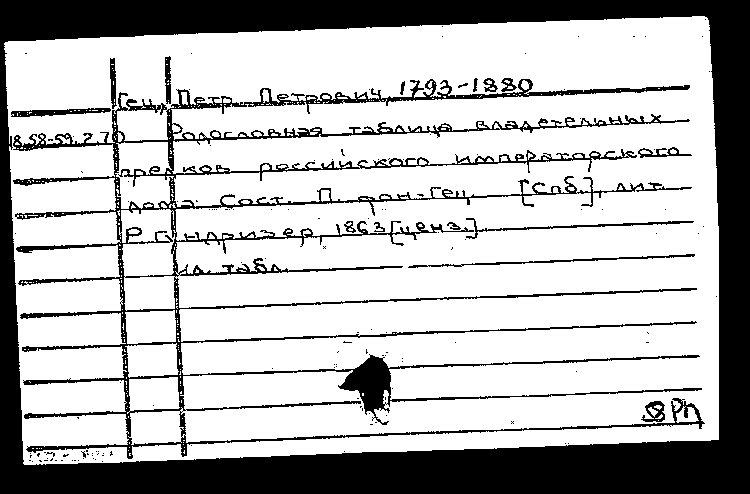 Гец, Петр Петрович, 1793-1880
18.58-59.2.70 Родословная таблица владетельных
предков российского императорского
дома. Сост. П. фон-Гец. [Спб.], лит.
Р. Гундризер, 1863 [ценз.].
1 л. табл.